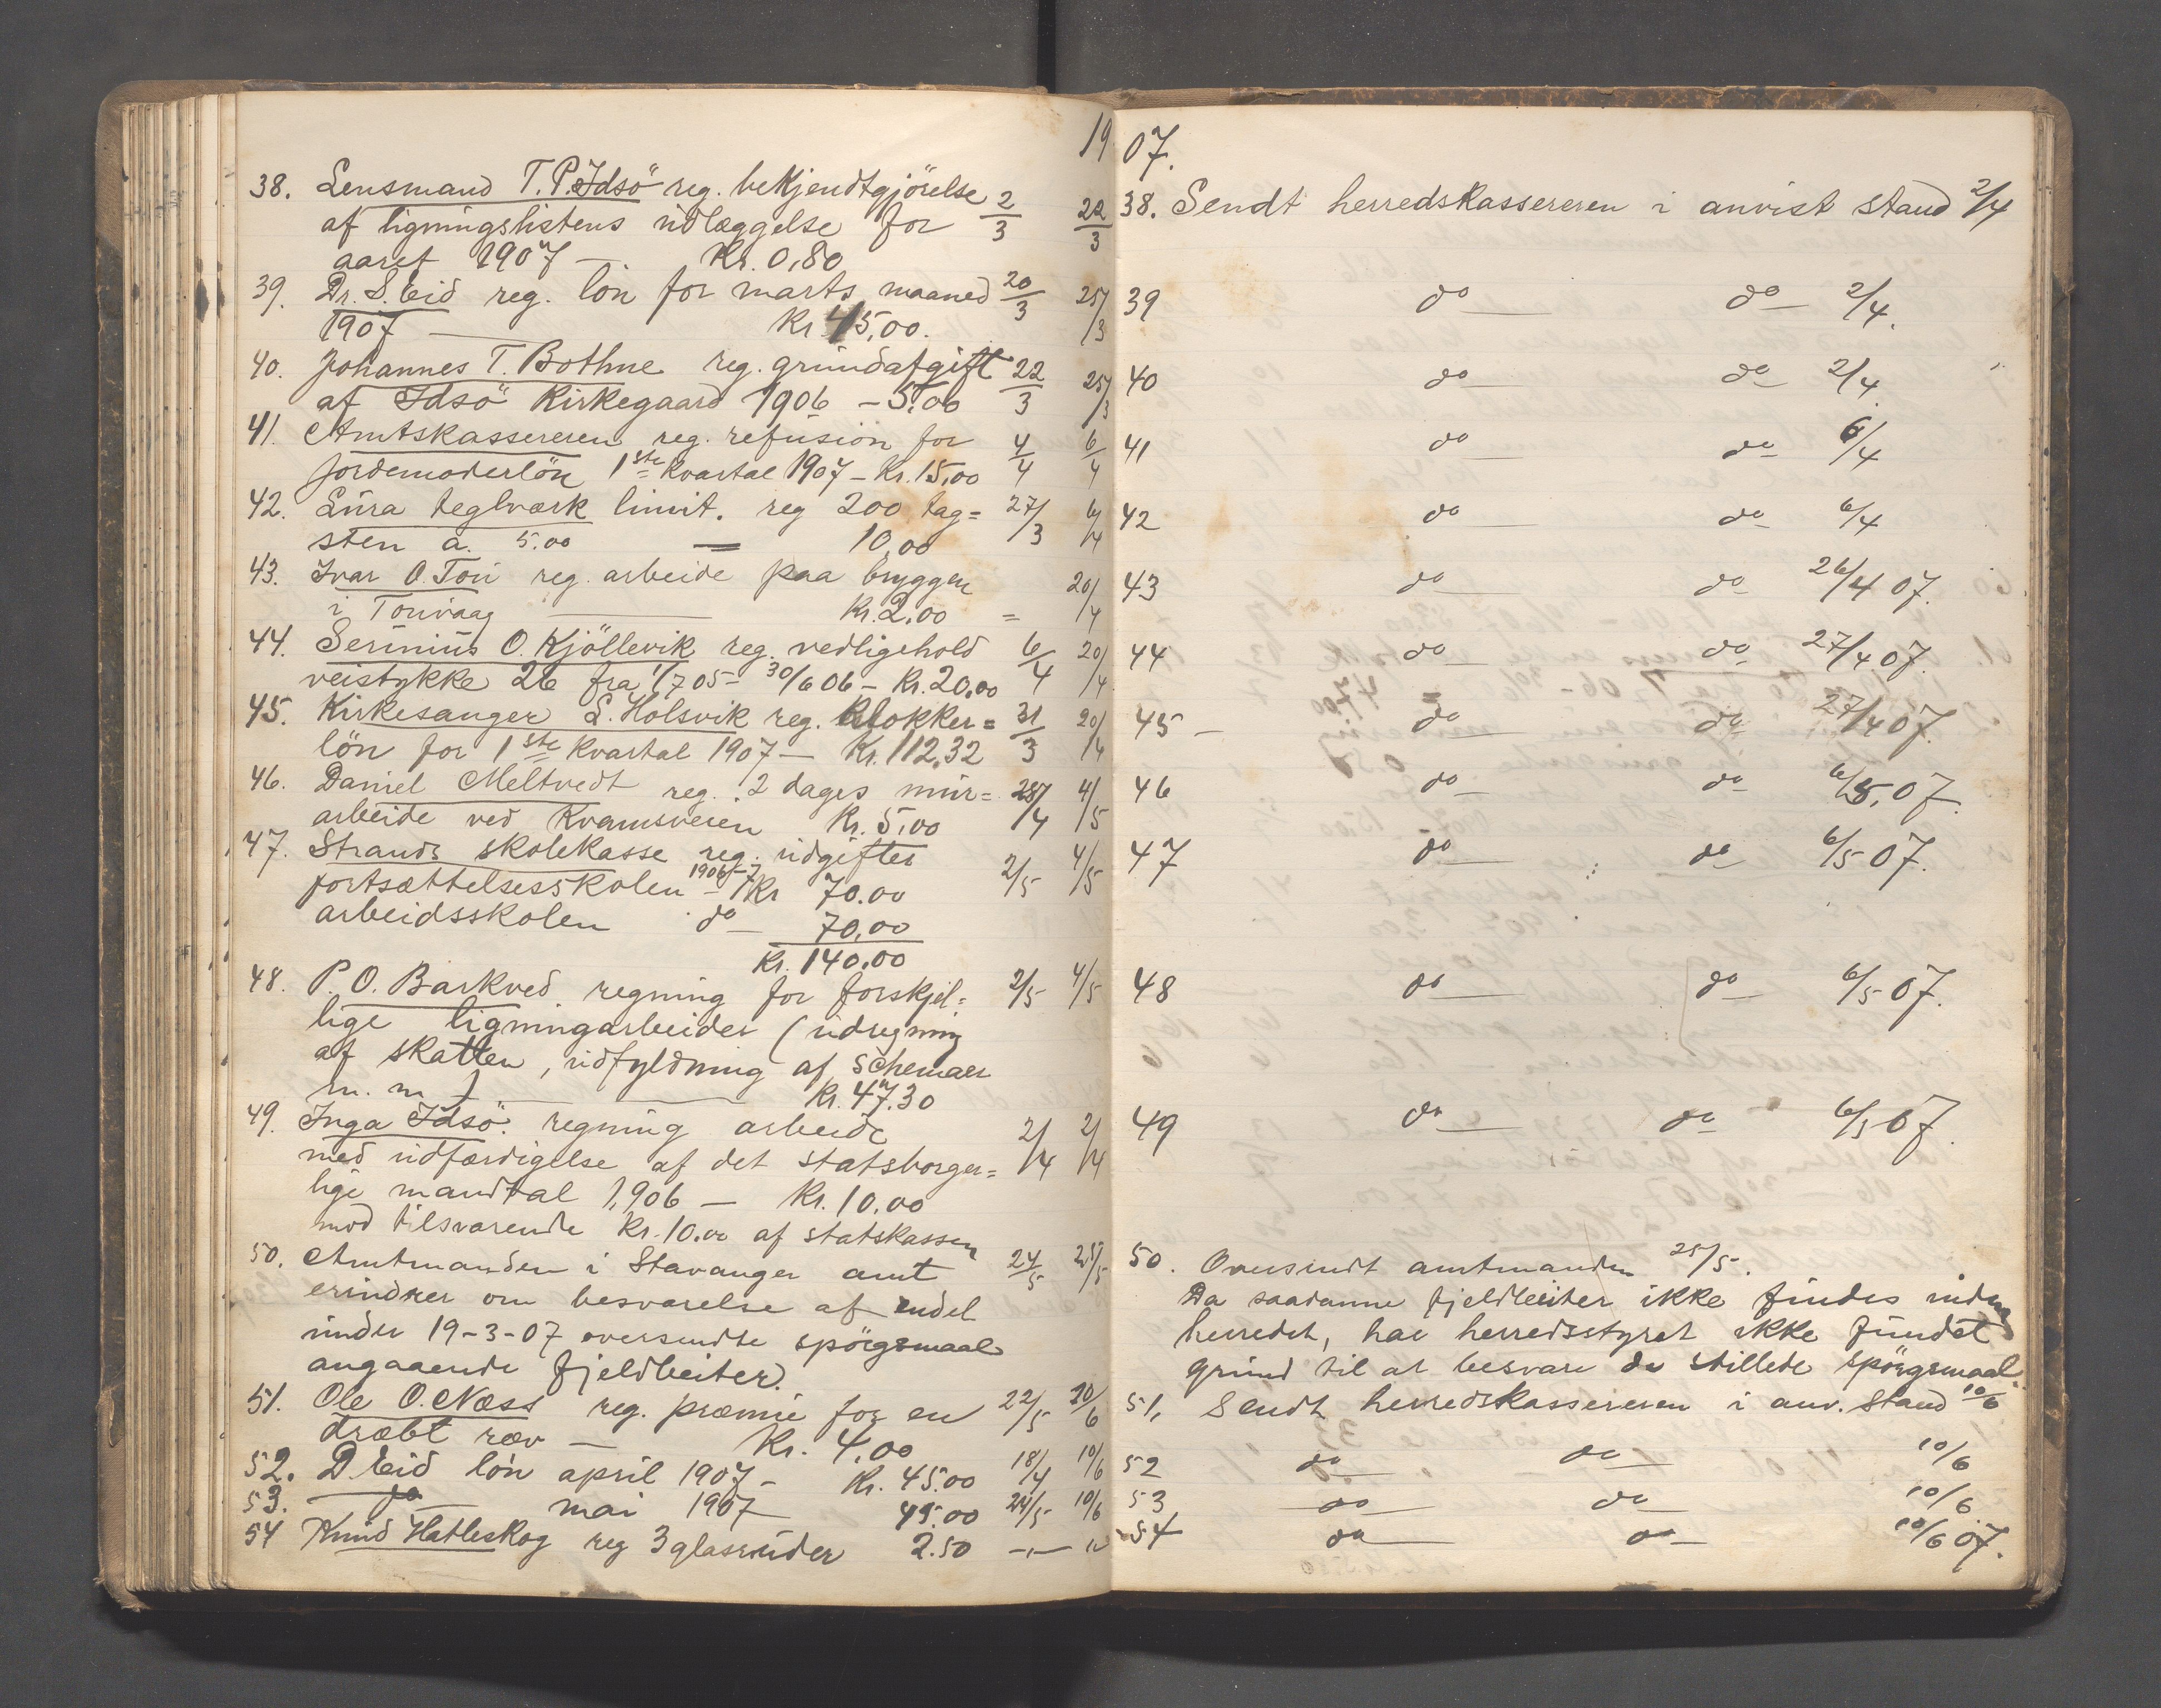 1907.
38. Lensmand T. P. Idsö reg. bekjendtgjörelse 2/3 22/3
af ligningslistens udlæggelse for
aaret 1907 — Kr. 0,80
39. Dr. S. Eid reg. lön for marts maaned 20/3 25/3
1907 — Kr. 45,00.
40. Johannes T. Bothne reg. grundafgift 22/3 25/3
af Idsö Kirkegaard 1906 – 5,00
41. Amtskassereren reg. refusion for 4/4 6/4
jordemoderlön 1ste Kvartal 1907 – Kr. 15,00
42. Lura teglværk limit. reg 200 tag= 27/3 6/4
sten a. 5.00 = 10,00
43. Ivar O. Tou reg. arbeide paa bryggen 20/4
i Touvaag — Kr. 2,00 =
44. Serinius O. Kjöllevik reg. vedligehold 6/4 20/4
veistykke 26 fra 1/7 05 – 30/6 06 – Kr. 20,00
45. Kirkesanger L. Holsvik reg. Klokker= 31/3 20/4
lön for 1ste Kvartal 1907 – Kr. 112,32
46. Daniel Meltvedt reg. 2 dages mur= 28/4 4/5
arbeide ved Kvamsveien Kr. 5,00
47. Strands skolekasse reg. udgifter 2/5 4/5
fortsættelsesskolen 1906–7 Kr 70.00
arbeidsskolen do — 70,00
Kr. 140.00
48. P. O. Barkved regning for forskjel= 2/5 4/5
lige ligningarbeider (udregning
af skatten, udfyldning af schemaer
m. m) — Kr. 47.30
49. Inga Idsö. regning arbeide 2/4 2/4
med udfærdigelse af det statsborger=
lige mandtal 1906 — Kr. 10.00
mod tilsvarende Kr. 10.00 af statskassen
50. Amtmanden i Stavanger amt 24/5 25/5
erindrer om besvarelse af endel
under 19-3-07 oversendte spörgsmaal
angaaende fjeldbeiter.
51. Ole O. Næss reg. præmie for en 22/5 10/6
dræbt ræv — Kr. 4,00
52. D. Eid lön april 1907 – Kr. 45.00 18/4 10/6
53. do mai 1907 45.00 24/5 10/6
54 Knud Hatleskog reg 3 glasruder 2.50 —"— "
38. Sendt herredskassereren i anvist stand 2/4
39 do — do — 2/4.
40 do — do — 2/4.
41 do — do — 6/4
42 do — do — 6/4
43 do — do — 26/4 07.
44 do — do — 27/4 07.
45 – do — do — 27/4 07.
46 do — do — 6/5.07.
47 do — do — 6/5 07.
48 do — do — 6/5 07.
49 do — do — 6/5 07.
50. Oversendt amtmanden 25/5.
Da saadanne fjeldbeiter ikke findes inden
herredet, har herredsstyret ikke fundet
grund til at besvare de stillede spörgsmaal.
51. Sendt herredskassereren i anv. stand 10/6
52 do — do — 10/6
53 do — do — 10/6.
54 do — do — 10/6 07.